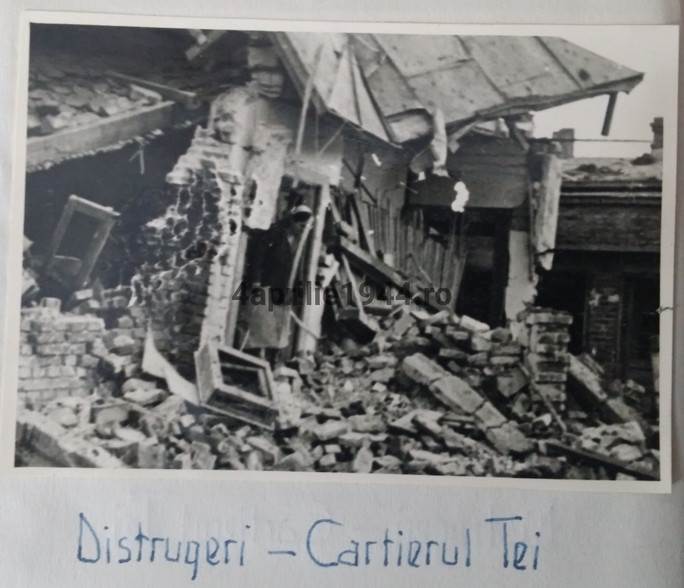 4aprilie1944.ro
Distrugeri – Cartierul Tei